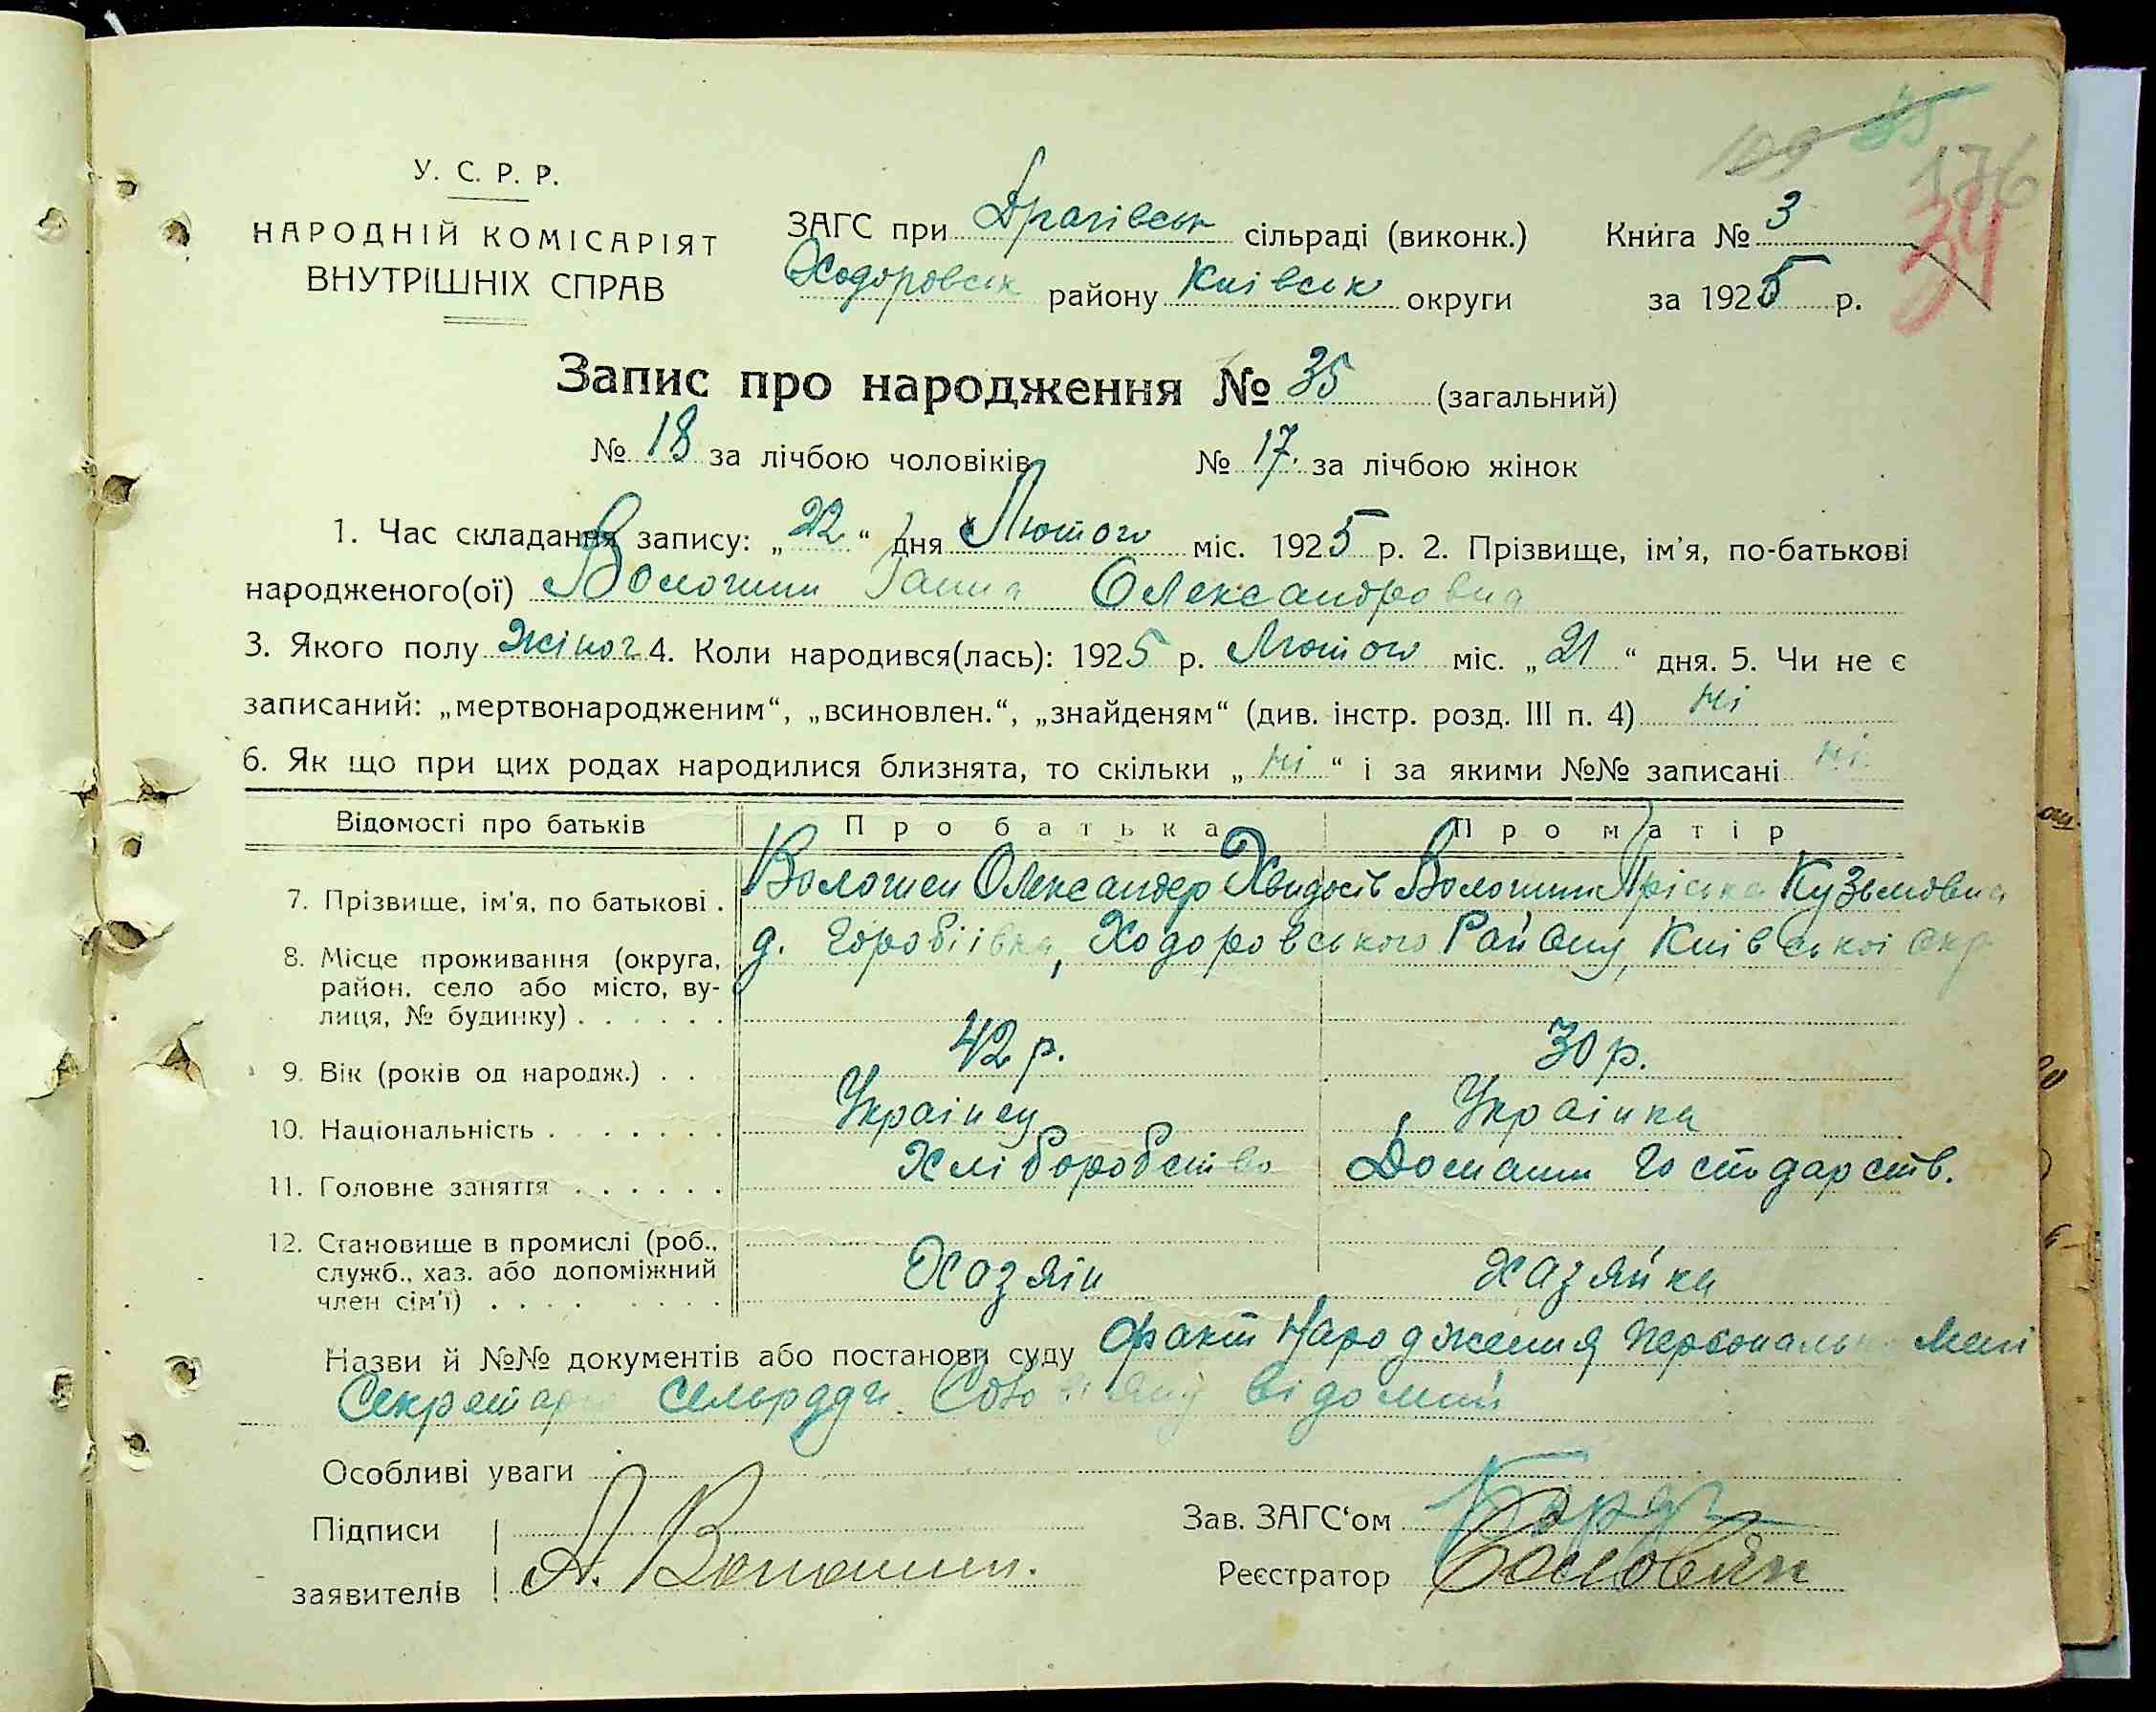 109 35
176
34
У. С. Р. Р.
НАРОДНІЙ КОМІСАРІЯТ
ВНУТРІШНІХ СПРАВ
ЗАГС при Драгівськ сільраді (виконк.)
Ходоровськ району Київськ округи
Книга № 3
за 1925 р.
Запис про народження № 35 (загальний)
№ 18 за лічбою чоловіків № 17. за лічбою жінок
1. Час складання запису: „22“ дня Лютого міс. 1925 р. 2. Прізвище, ім'я, по-батькові
народженого(ої) Волошин Ганна Олександровна
3. Якого полу жіног 4. Коли народився(лась): 1925 р. Лютого міс. „21“ дня. 5. Чи не є
записаний: „мертвонародженим“, „всиновлен.“, „знайденям“ (див. інстр. розд. III п. 4) ні
6. Як що при цих родах народилися близнята, то скільки „ні“ і за якими №№ записані ні
Відомості про батьків Про батька Про матір
7. Прізвище, ім'я, по батькові . Волошен Олександер Волошин Пріська Кузьмовна
8. Місце проживання (округа, д. Горобіівка, Ходоровського Району, Киівськоі окр
район, село або місто, ву-
лиця, № будинку) . . . . . .
9. Вік (років од народж.) . . 42 р. 30 р.
10. Національність . . . . . . . Украінец Украінка
11. Головне заняття . . . . . . Хліборобство Домашн Господарств.
12. Становище в промислі (роб.,
служб., хаз. або допоміжний Хазяін хазяйка
член сім'ї) . . . . . . . .
Назви й №№ документів або постанови суду факт Народження Персональн мені
Секретарю Сельради відомий
Особливі уваги
Підписи
заявителів А. Волошин.
Зав. ЗАГС'ом
Реєстратор